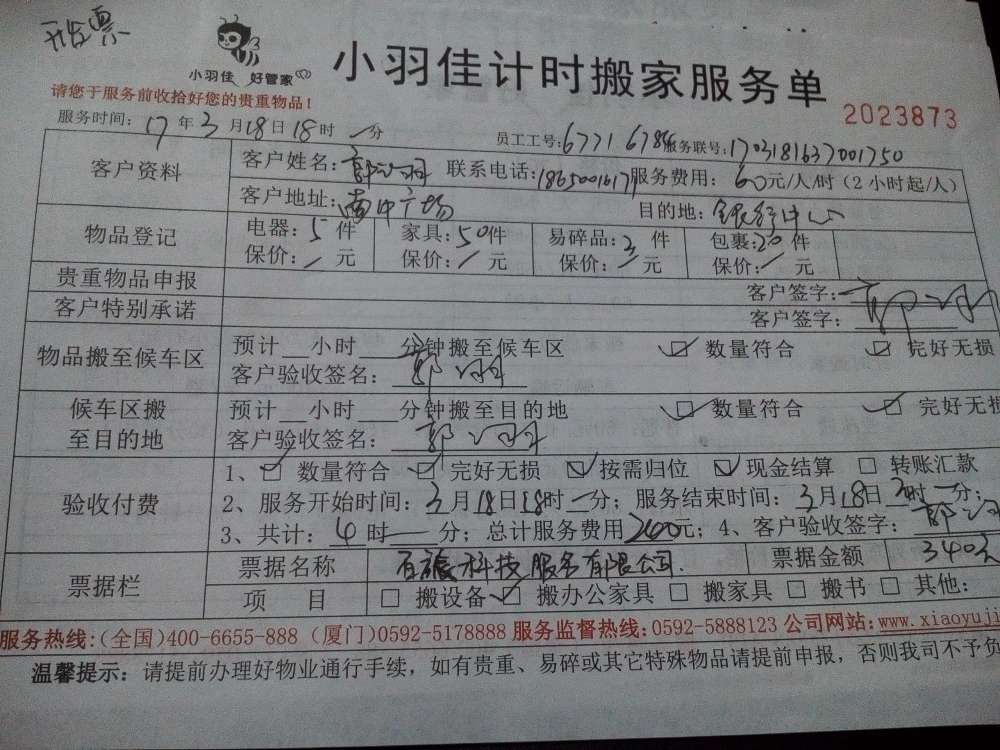 开发票
小羽佳 好管家
小羽佳计时搬家服务单
请您于服务前收拾好您的贵重物品！
2023873
服务时间：17年3月18日18时 一分
员工工号：6771 6786 服务联号：1703181637001750
客户资料
客户姓名： 联系电话： 服务费用：60元/人/时（2小时起/人）
客户地址：南中广场 目的地：银行中心
物品登记
电器：5件 家具：50件 易碎品：3件 包裹：20件
保价：/元 保价：/元 保价：/元 保价：/元
贵重物品申报 客户签字：
客户特别承诺 客户签字：
物品搬至候车区
预计__小时___分钟搬至候车区 ☑ 数量符合 ☑ 完好无损
客户验收签名：
候车区搬至目的地
预计__小时___分钟搬至目的地 ☑ 数量符合 ☑ 完好无损
客户验收签名：
验收付费
1、☑ 数量符合 ☑ 完好无损 ☑ 按需归位 ☑ 现金结算 □ 转账汇款
2、服务开始时间：3月18日18时一分；服务结束时间：3月18日 时一分；
3、共计：4时一分；总计服务费用 元；4、客户验收签字：
票据栏
票据名称 科技服务有限公司. 票据金额 340元
项目 □ 搬设备 ☑ 搬办公家具 □ 搬家具 □ 搬书 □ 其他：
服务热线：(全国)400-6655-888 (厦门)0592-5178888 服务监督热线：0592-5888123 公司网站：www.xiaoyuji
温馨提示：请提前办理好物业通行手续，如有贵重、易碎或其它特殊物品请提前申报，否则我司不予负